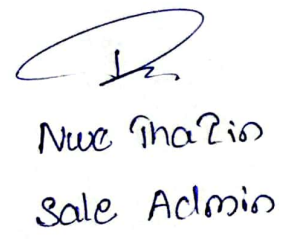 Nwe Thazin
Sale Admin